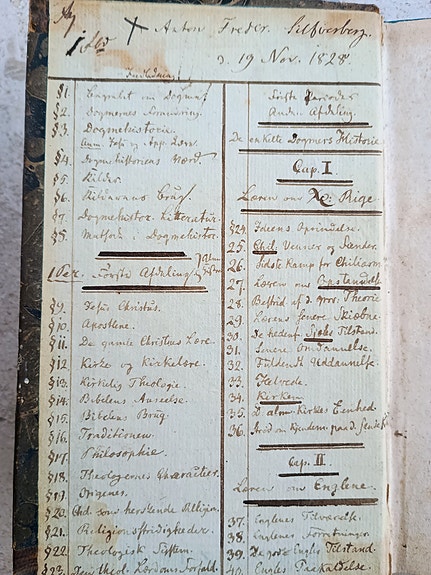 Anton Freder. Silfverberg.
d. 19 Nov. 1828
Indledning
§1. Begrebet om Dogmer
§2. Dogmernes
§3. Dogmehistorie.
§4. Dogmehistoriens Værd.
§5. Kilder
§6. Kildernes Brug.
§7. Dogmehistor. Litteratur.
§8. Methode i Dogmehistor.
1 Per. Første Afdeling
§9. Jesus Christus.
§10. Apostlene.
§11. De gamle Christnes Lære.
§12. Kirke og Kirkelære.
§13. Kirkelig Theologie.
§14. Bibelens Anseelse.
§15. Bibelens Brug.
§16. Traditionen
§17. Philosophie.
§18. Theologernes Charakteer.
§19. Origenes.
§20. Chd. som herskende Religion.
§21. Religionsstridigheder.
§22. Theologisk System.
§23. Den theol. Lærdoms Forfald.
Første Periodes
Anden Afdeling.
De enkelte Dogmers Historie
Cap. I.
Læren om Rige.
§24. Ideens Oprindelse.
25. Chil. Venner og
26. Sidste Kamp for Chiliasm
27. Læren om Opstandelse
28. Bestrid. af d. Theorie
29. Lærens senere Skiæbne.
30. De hedenf. Sjæles Tilstand.
31. Senere Omdannelse.
32. Fuldendt Uddannelse.
33. Helvede.
34. Kirken
35. D. alm. Kirkes Eenhed.
36.
Cap. II.
Læren om Englene.
37. Englenes Tilværelse.
38. Englenes Forretninger
39. De gode Engles Tilstand.
40. Engles Paakaldelse.